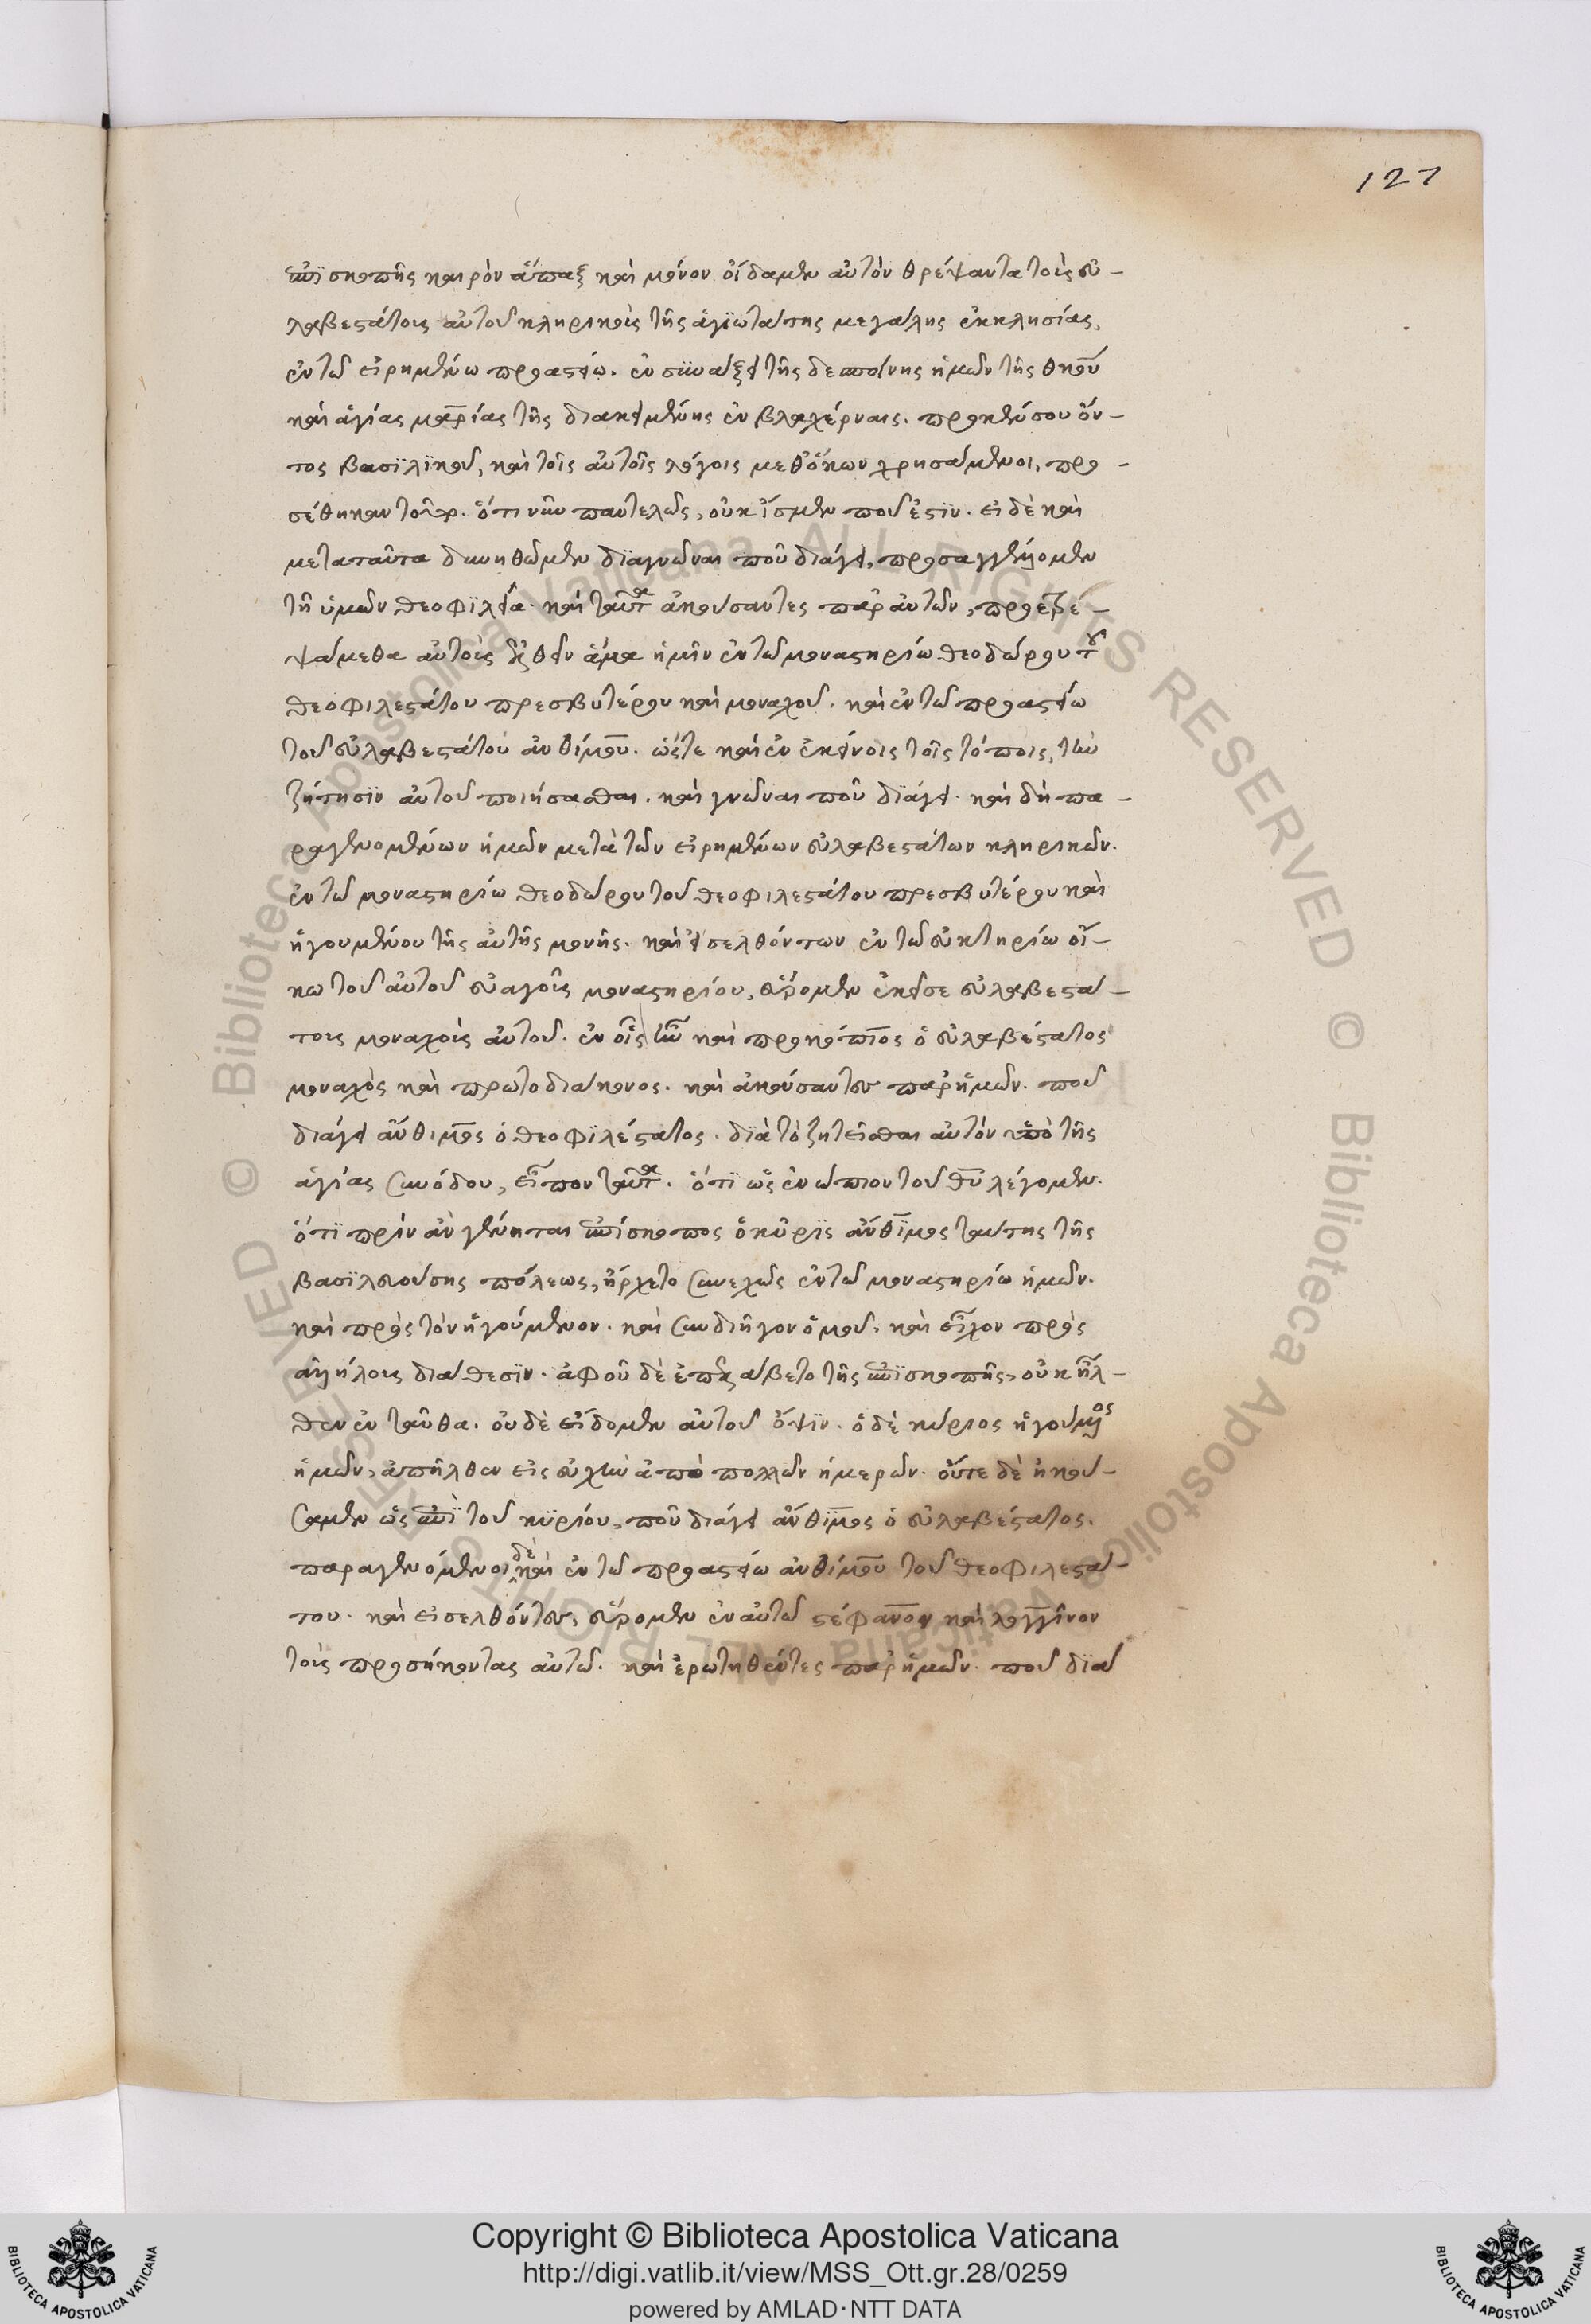 127
ἐπϊσκοπῆς καιρὸν ἅπαξ καὶ μόνον οἴδαμεν αὐτὸν θρέψαντα τοὺς εὐ-
λαβεστάτους αὐτοῦ κληρικοὺς τῆς ἁγϊωτάτης μεγάλης ἐκκλησίας,
ἐν τῶ εἰρημένω προαστείω. ἐν συνάξει τῆς δεσποίνης ἡμῶν τῆς θκου
καὶ ἁγίας μαρίας τῆς διακειμένης ἐν βλαχέρναις. προκένσου ὄν-
τος βασϊλϊκοῦ, καὶ τοῖς αὐτοῖς λόγοις μεθ' ὅρκων χρησάμενοι, προ-
σέθηκαν τοῦτο. ὅτι νῦν παντελῶς, οὐκ ἴσμεν ποῦ ἐστϊν. εἰ δὲ καὶ
μετὰ ταῦτα δυνηθῶμεν δϊαγνῶναι ποῦ διάγει, προσαγγέλλομεν
τῆ ὑμῶν θεοφϊλεία. καὶ ταῦτα ἀκούσαντες παρ' αὐτῶν, προετρε-
ψάμεθα αὐτοὺς ἐλθεῖν ἅμα ἡμῖν ἐν τῶ μοναστηρίω θεοδώρου τοῦ
θεοφιλεστάτου πρεσβυτέρου καὶ μοναχοῦ. καὶ ἐν τῶ προαστείω
τοῦ εὐλαβεστάτου ἀνθίμου. ὥστε καὶ ἐν ἐκείνοις τοῖς τόποις, τὴν
ζήτησϊν αὐτοῦ ποιήσασθαι. καὶ γνῶναι ποῦ δϊάγει. καὶ δὴ πα-
ραγενομένων ἡμῶν μετὰ τῶν εἰρημένων εὐλαβεστάτων κληρικῶν.
ἐν τῶ μοναστηρίω θεοδώρου τοῦ θεοφιλεστάτου πρεσβυτέρου καὶ
ἡγουμένου τῆς αὐτῆς μονῆς. καὶ εἰσελθόντων ἐν τῶ εὐκτηρίω οἴ-
κω τοῦ αὐτοῦ εὐαγοῦς μοναστηρίου, εὕρομεν ἐκεῖσε εὐλαβεστά-
τους μοναχοὺς αὐτοῦ. ἐν οἷς ἦν καὶ προκόπιος ὁ εὐλαβέστατος
μοναχὸς καὶ πρωτοδιάκονος. καὶ ἀκούσαντες παρ' ἡμῶν. ποῦ
διάγει ἄνθιμος ὁ θεοφϊλέστατος. δϊὰ τὸ ζητεῖσθαι αὐτὸν ὑπὸ τῆς
ἁγίας συνόδου, εἶπον ταῦτα. ὅτϊ ὡς ἐνώπιον τοῦ θυ λέγομεν.
ὅτϊ πρὶν ἂν γένηται ἐπίσκοπος ὁ κῦρϊς ἄνθϊμος ταύτης τῆς
βασϊλευούσης πόλεως, ἤρχετο συνεχῶς ἐν τῶ μοναστηρίω ἡμῶν.
καὶ πρὸς τὸν ἡγούμενον. καὶ συνδιῆγον ὁμοῦ. καὶ εἶχον πρὸς
ἀλλήλους διάθεσϊν. ἀφοῦ δὲ ἐπελάβετο τῆς ἐπϊσκοπῆς, οὐκ ἦλ-
θεν ἐνταῦθα. οὐδὲ εἴδομεν αὐτοῦ ὄψϊν. ὁ δὲ κύριος ἡγούμενος
ἡμῶν, ἀπῆλθεν εἰς εὐχὴν ἀπὸ πολλῶν ἡμερῶν. οὔτε δὲ ἠκού-
σαμεν ὡς ἐπὶ τοῦ κϋρίου, ποῦ διάγει ἄνθϊμος ὁ εὐλαβέστατος.
παραγενόμενοι δὲ καὶ ἐν τῶ προαστείω ἀνθίμου τοῦ θεοφιλεστά-
του. καὶ εἰσελθόντες, εὕρομεν ἐν αὐτῶ στέφανον καὶ λογγῖνον
τοὺς προσήκοντας αὐτῶ. καὶ ἐρωτηθέντες παρ' ἡμῶν. ποῦ δϊά
© Biblioteca Apostolica Vaticana ALL RIGHTS RESERVED
Copyright © Biblioteca Apostolica Vaticana
http://digi.vatlib.it/view/MSS_Ott.gr.28/0259
powered by AMLAD·NTT DATA
BIBLIOTECA APOSTOLICA VATICANA
BIBLIOTECA APOSTOLICA VATICANA